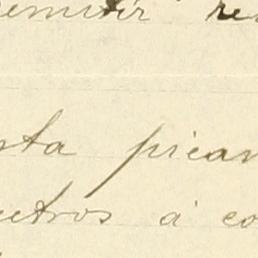 remitir re
sta pican
uetros á co